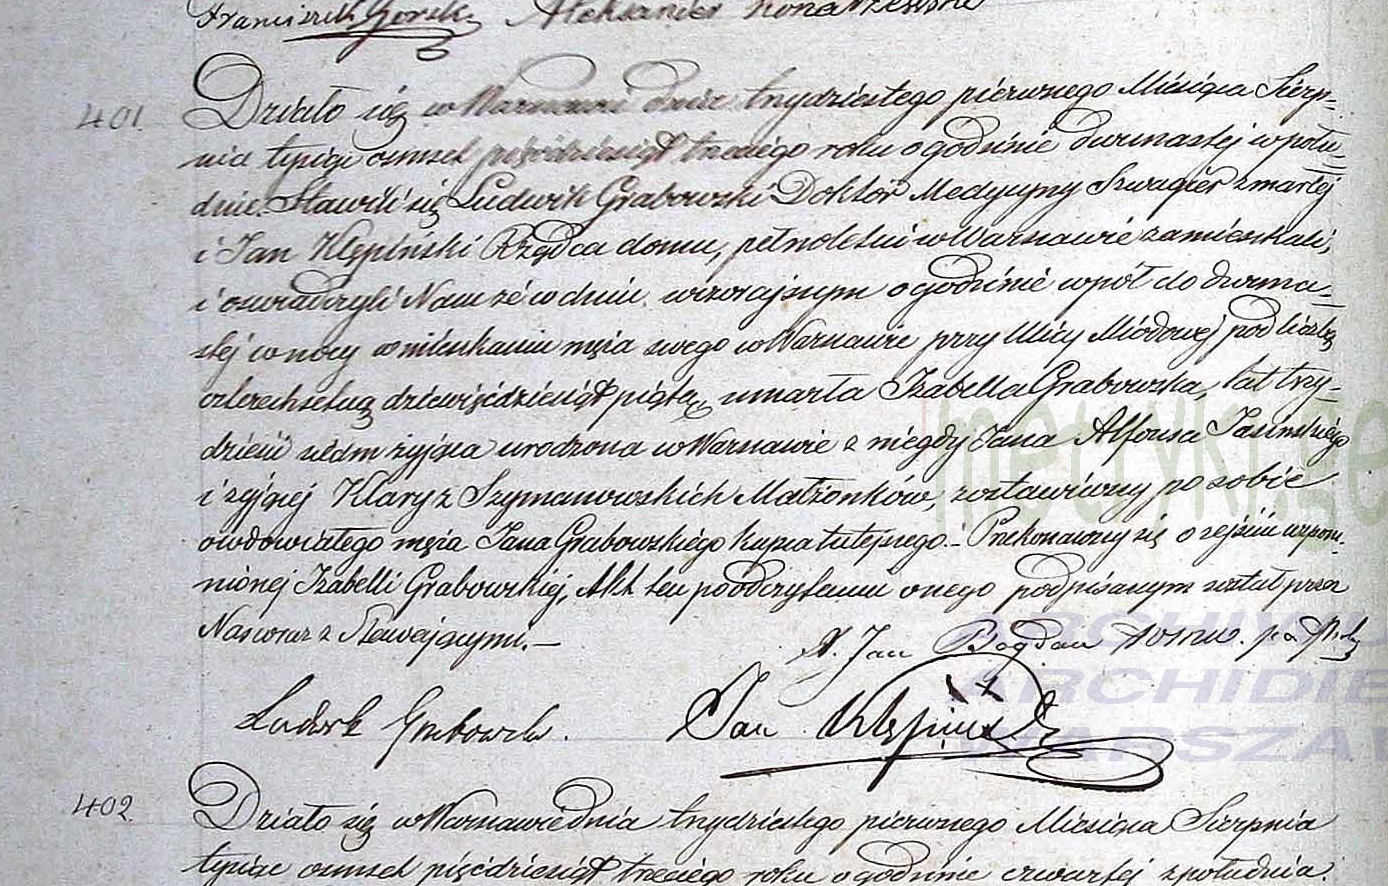 Franciszek Gorski Aleksander Konarzewski
401. Działo się w Warszawie dnia trzydziestego pierwszego Miesiąca Sierp=
nia tysiąc osmset pięćdziesiąt trzeciego roku o godzinie dwunastej w połu=
dnie. Stawili się Ludwik Grabowski Doktór Medycyny Szwagier zmarłej
i Jan Klępiński Rządca domu, pełnoletni w Warszawie zamieszkali,
i oswiadczyli Nam że w dniu wczorajszym o godzinie wpół do dwuna=
stej w nocy w mieszkaniu męża swego w Warszawie przy Ulicy Miodowej pod liczbą
czterechsetną dziewięćdziesiąt piątą, umarła Izabella Grabowska, lat trzy=
dzieści siedm żyjąca urodzona w Warszawie z niegdy Jana Alfonsa Jasinskiego
i żyjącej Klary z Szymanowskich Małżonków, zostawiwszy po sobie
owdowiałego męża Jana Grabowskiego kupca tutejszego.– Przekonawszy się o zejściu wspom=
nionej Izabelli Grabowskiej, Akt ten po odczytaniu onego podpisanym został przez
Nas wraz z Stawającymi.–
X. Jan Bogdan
Ludwik Grabowski. Jan Klępiński
402. Działo się w Warszawie dnia trzydziestego pierwszego Miesiąca Sierpnia
tysiąc osmset pięćdziesiąt trzeciego roku o godzinie czwartej z południa.
metryki.ge
ARCHIWU
ARCHIDIE
WARSZAW